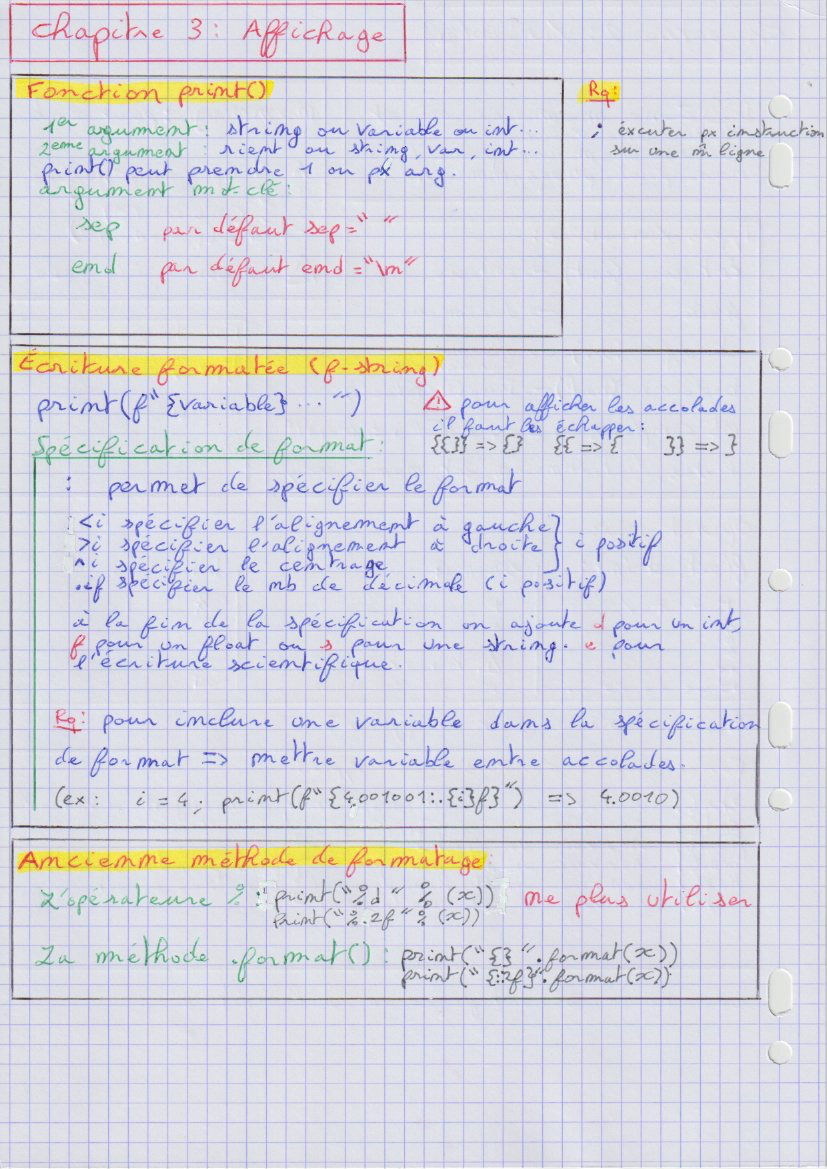 Chapitre 3 : Affichage
Fonction print()
1er argument : string ou variable ou int...
2eme argument : rient ou string, var, int...
print() peut prendre 1 ou px arg.
argument mot-clé :
sep par défaut sep=" "
end par défaut end ="\n"
Rq :
; éxcuter px instruction
sur une m̂ ligne
Écriture formatée (f-string)
print(f"{variable} ... ")
⚠ pour afficher les accolades
il faut les échapper :
{{}} => {} {{ => { }} => }
Spécification de format :
: permet de spécifier le format
<i spécifier l'alignement à gauche
>i spécifier l'alignement à droite } i positif
^i spécifier le centrage
.if spécifier le nb de décimale (i positif)
à la fin de la spécification on ajoute d pour un int,
f pour un float ou s pour une string. e pour
l'écriture scientifique.
Rq : pour inclure une variable dans la spécification
de format => mettre variable entre accolades.
(ex : i = 4 ; print(f"{4.001001:.{i}f}") => 4.0010)
Ancienne méthode de formatage :
L'opérateure % : print("%d" % (x)) ne plus utiliser
print("%.2f"% (x))
La méthode .format() : print("{}".format(x))
print("{:.2f}".format(x))